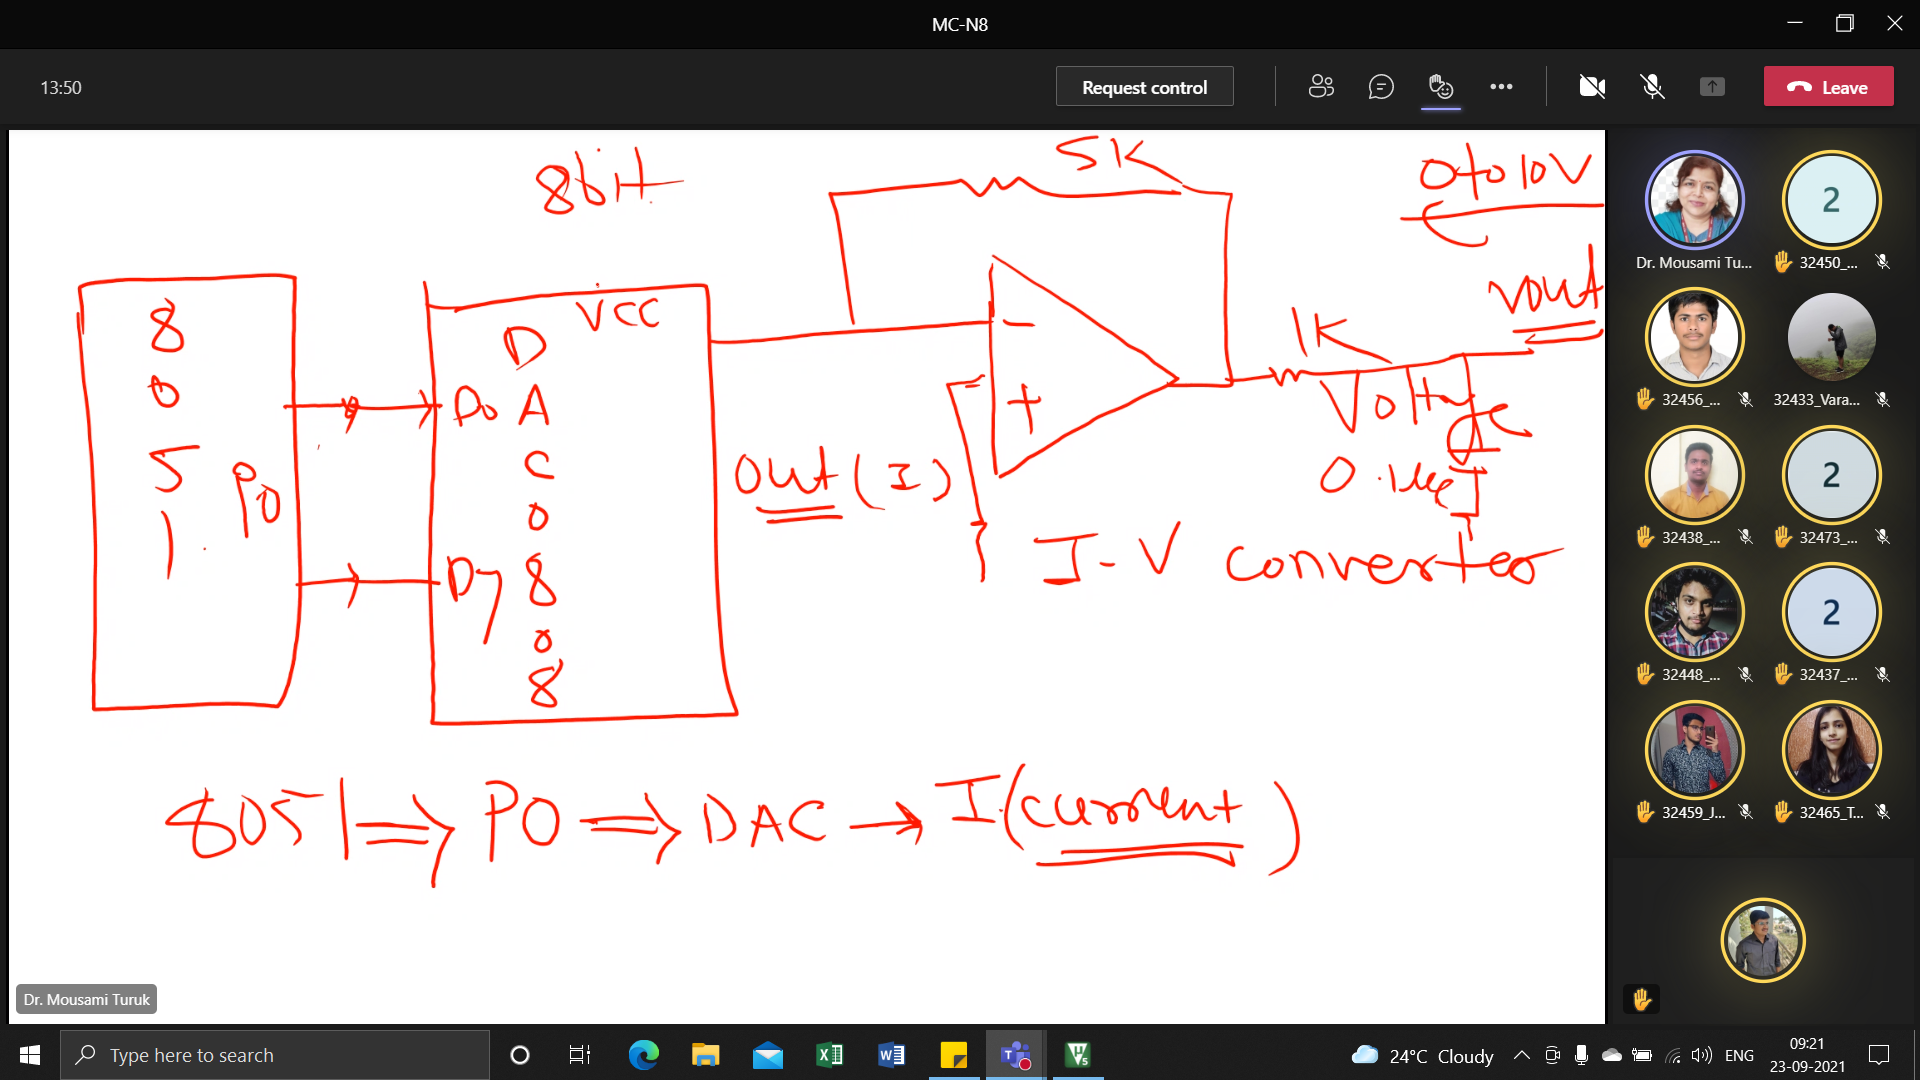 MC-N8
13:50
Request control
Leave
8bit
5K
0 to 10V
Vout
8051
P0
VCC
DAC0808
D0
D7
out (I)
-
+
1K
Voltage
0.1
I-V converter
8051 ⇒ P0 ⇒ DAC → I (current)
Dr. Mousami Turuk
Dr. Mousami Tu...
2
32450_...
32456_...
32433_Vara...
32438_...
2
32473_...
32448_...
2
32437_...
32459_J...
32465_T...
Type here to search
24°C Cloudy
ENG
09:21
23-09-2021